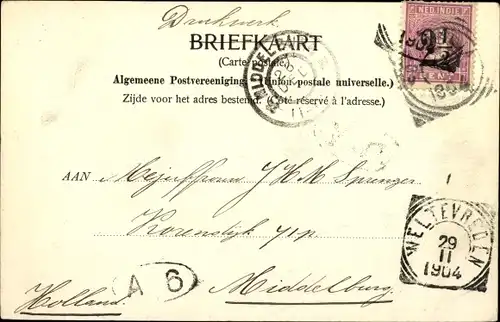 Drukwerk
NED. INDIE
BRIEFKAART
(Carte postale)
Algemeene Postvereeniging (Union postale universelle.)
Zijde voor het adres bestemd. (Côté réservé à l'adresse.)
MIDDEL
AAN Mejuffrouw J H M Sprenger
Korendijk
Middelburg
Holland.
A 6
WELTEVREDEN
29
11
1904